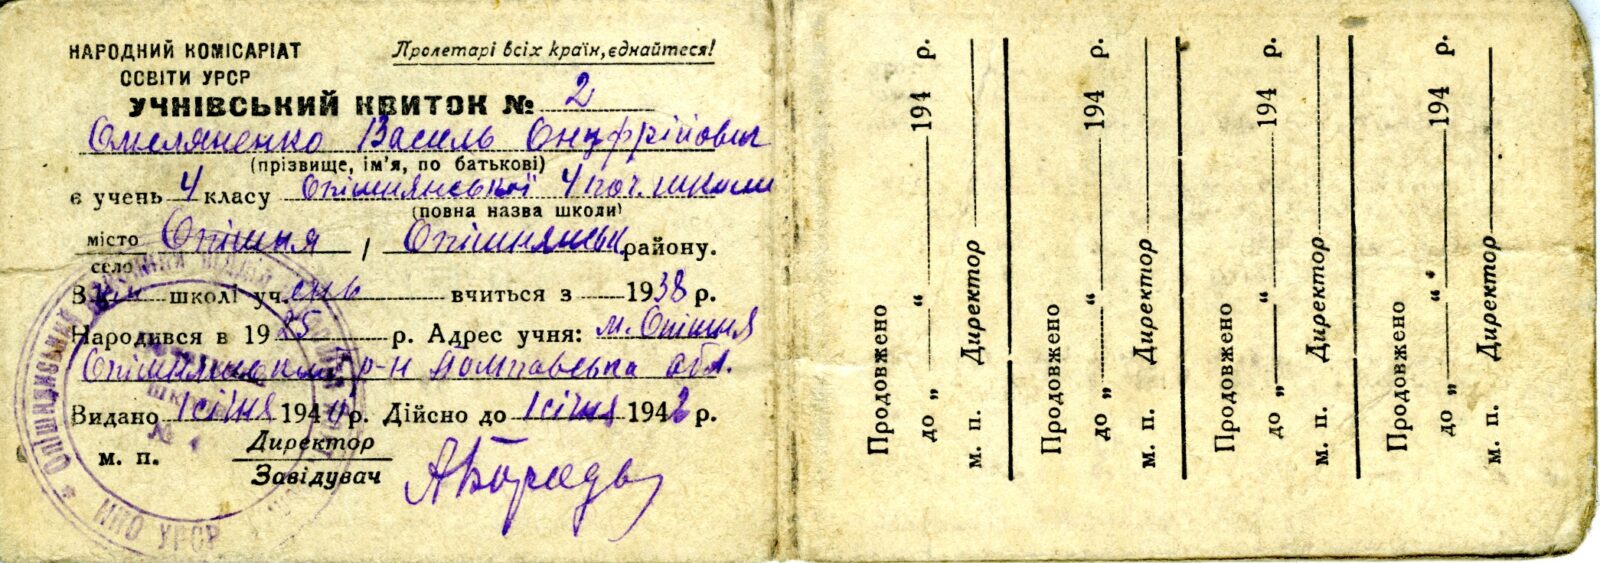 НАРОДНИЙ КОМІСАРІАТ
ОСВІТИ УРСР
Пролетарі всіх країн, єднайтеся!
УЧНІВСЬКИЙ КВИТОК № 2
Омеляненко Василь Онуфрійович
(прізвище, ім'я, по батькові)
є учень 4 класу Опішнянської 4 поч. школи
(повна назва школи)
місто Опішня / Опішнянськ. району.
село
В школі уч.ень вчиться з 1938 р.
Народився в 1925 р. Адрес учня: м. Опішня
Опішнянський р-н Полтавська обл.
Видано 1 січня 194 р. Дійсно до 1 січня 1942 р.
м. п. Директор
Завідувач
НКО УРСР
Продовжено
до „ “ 194 р.
м. п. Директор
Продовжено
до „ “ 194 р.
м. п. Директор
Продовжено
до „ “ 194 р.
м. п. Директор
Продовжено
до „ “ 194 р.
м. п. Директор